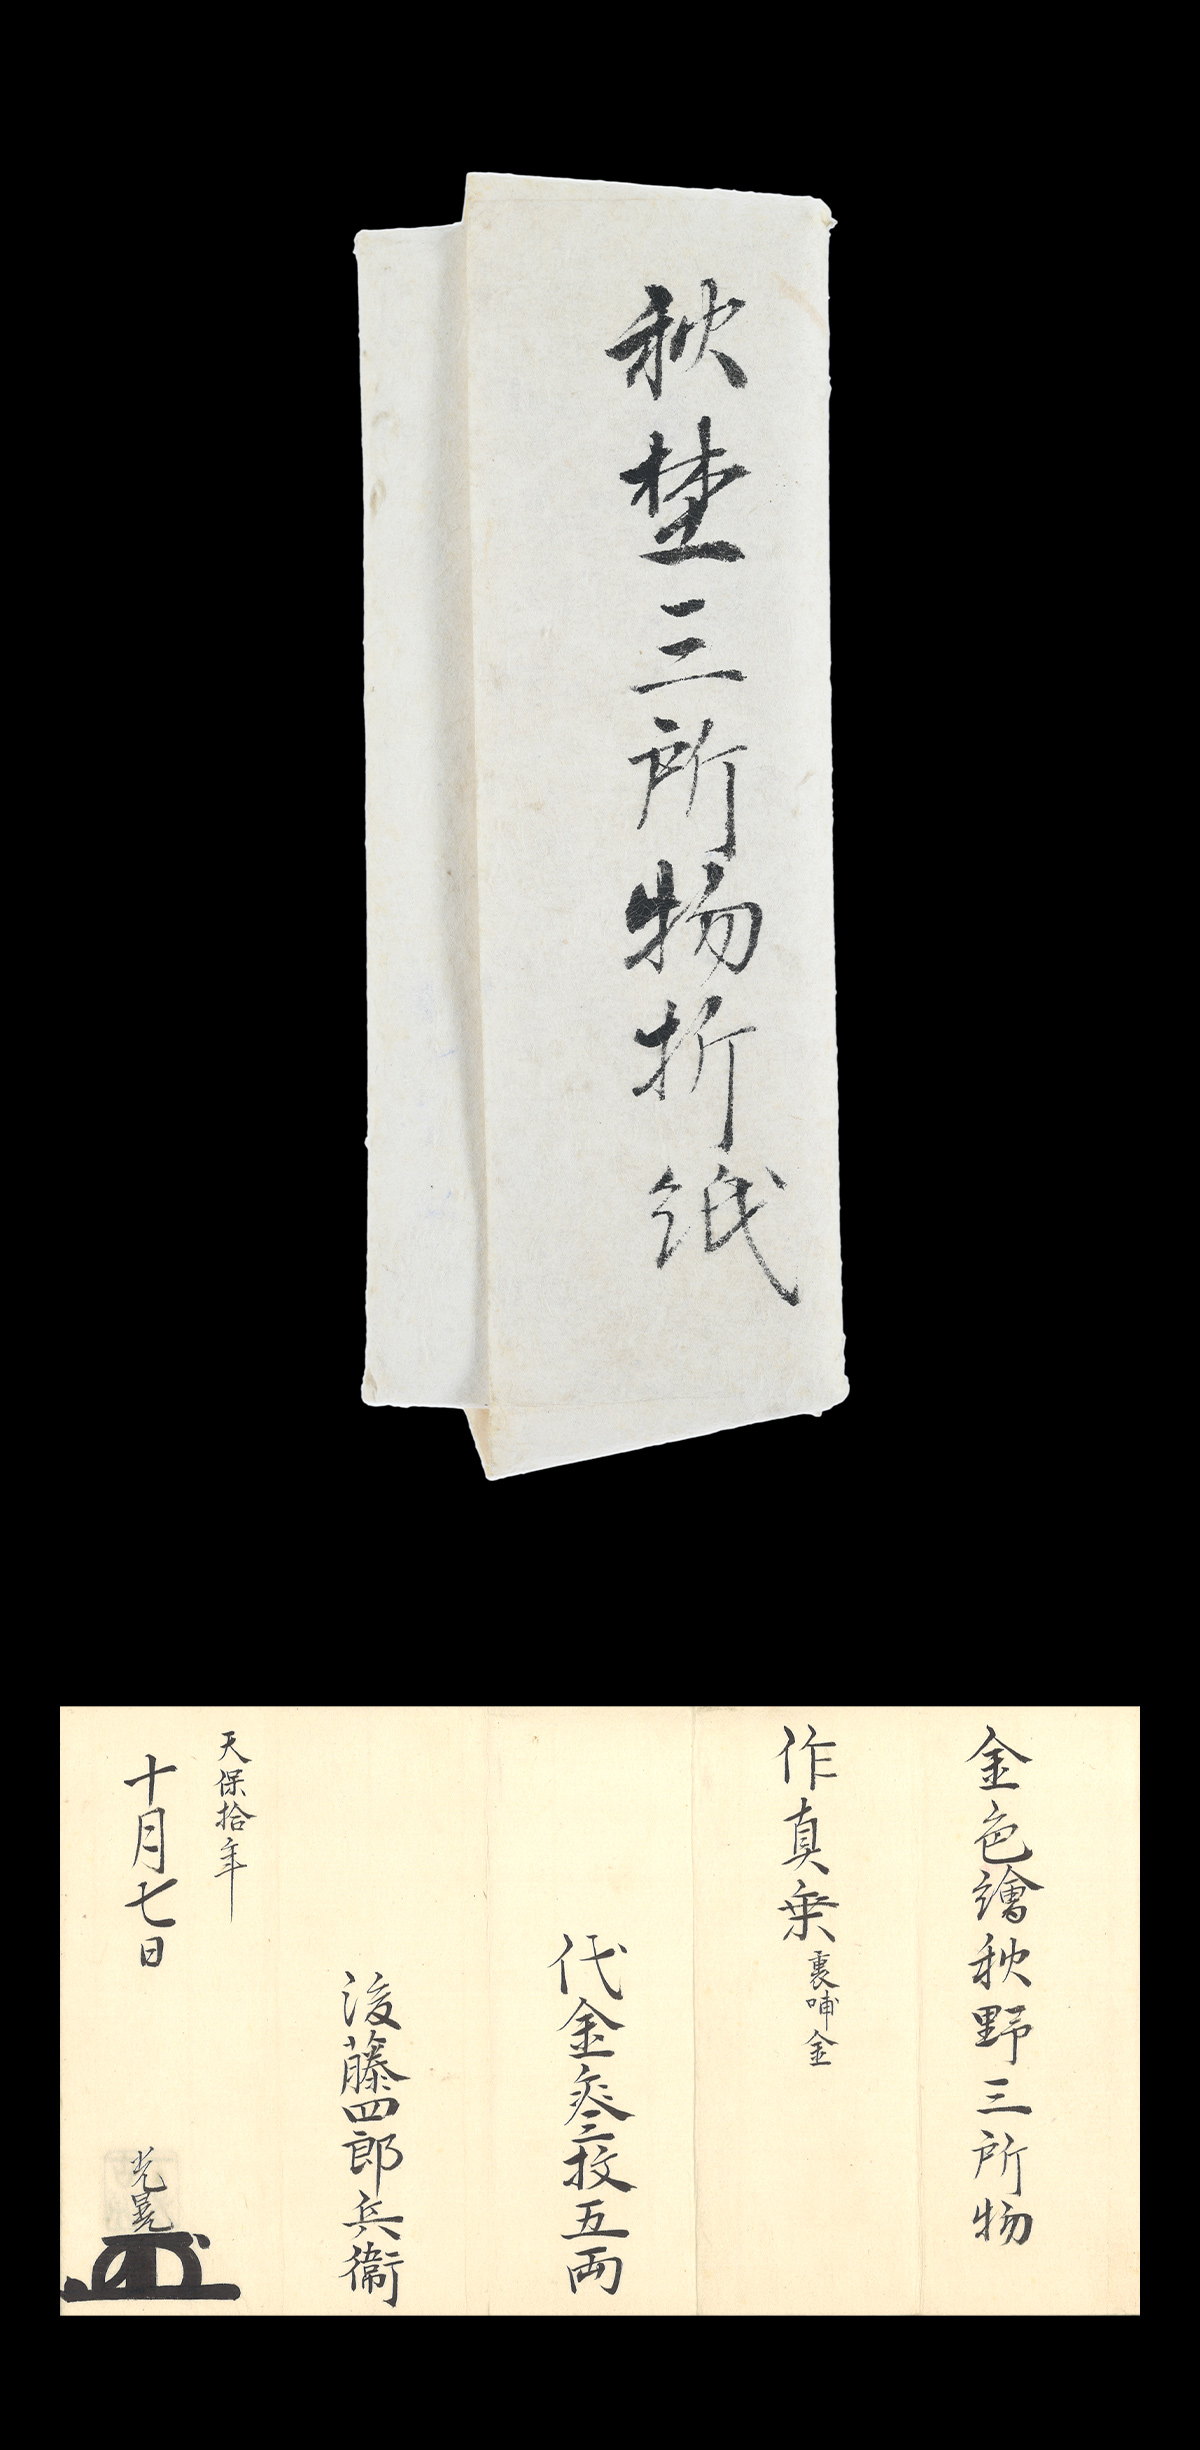 秋埜三所物折紙
金色繪秋野三所物
作真乗裏哺金
代金叄枚五両
後藤四郎兵衛
天保拾年
十月七日
光晃